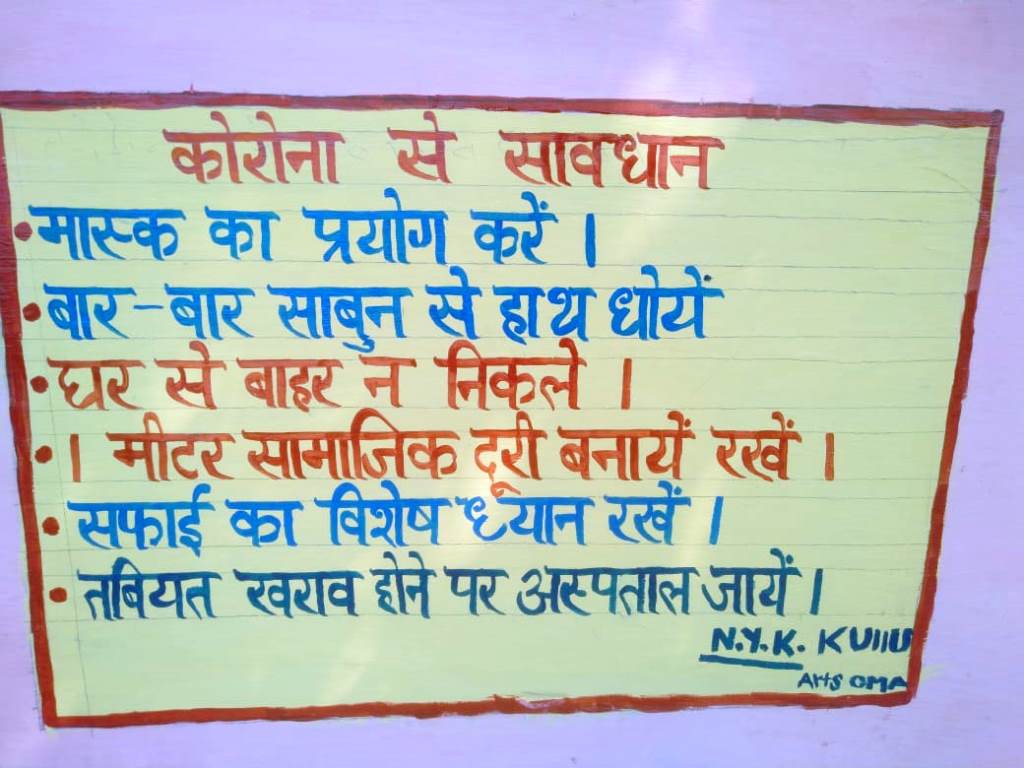 कोरोना से सावधान
• मास्क का प्रयोग करें ।
• बार-बार साबुन से हाथ धोयें
• घर से बाहर न निकले ।
• 1 मीटर सामाजिक दूरी बनायें रखें ।
• सफाई का विशेष ध्यान रखें ।
• तबियत खराव होने पर अस्पताल जायें ।
N.Y.K. KUllU
Arts OMA